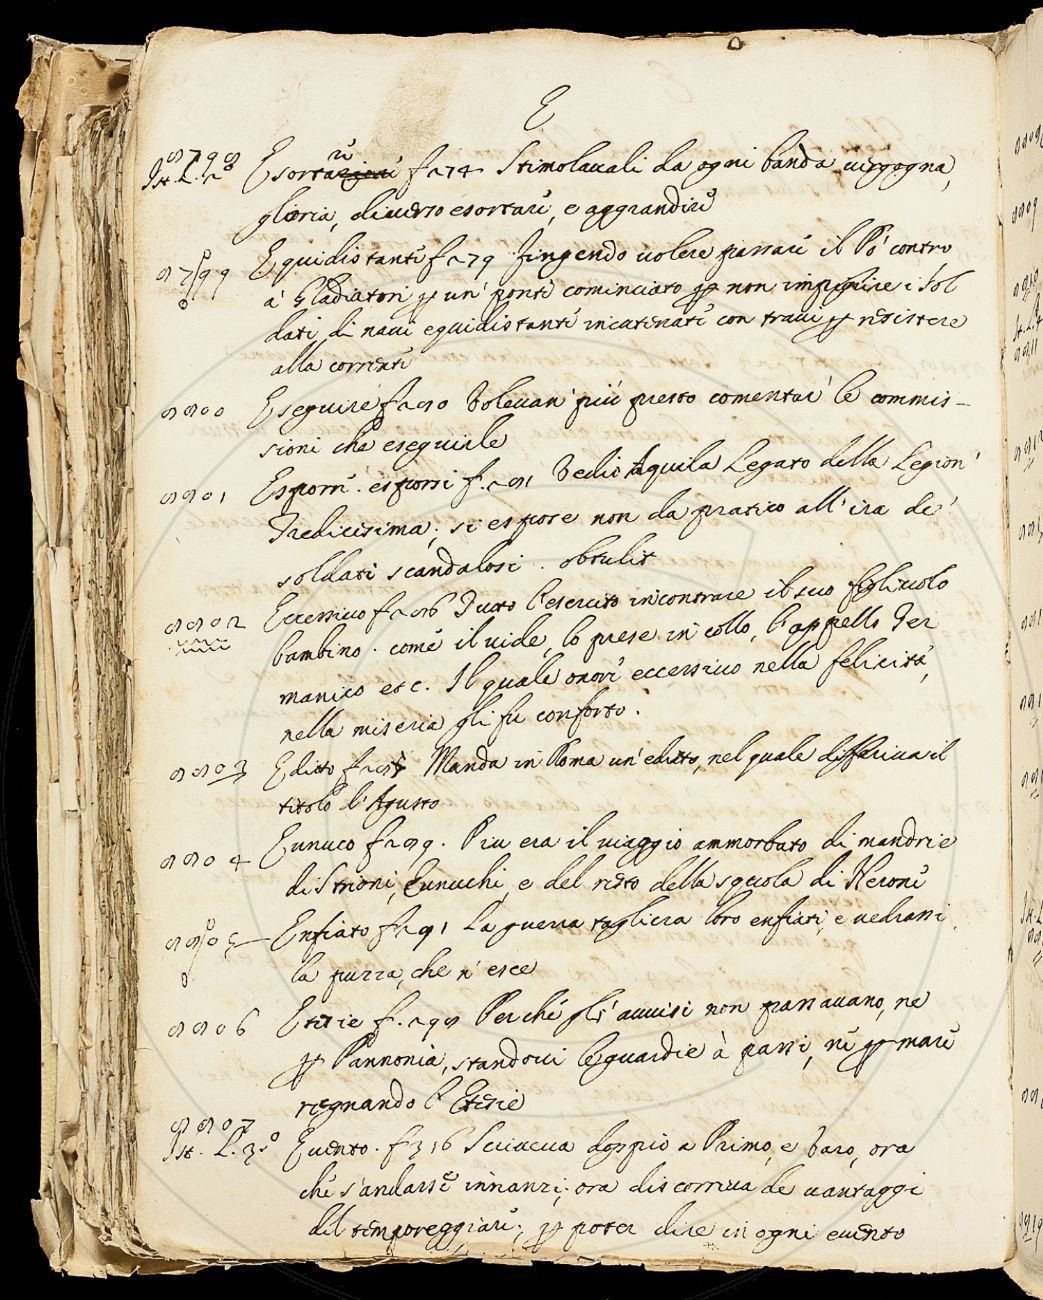 E
8798 Ist. L. 2º Esortare f 274 Stimolavali da ogni banda vergogna,
gloria, diverso esortare, e aggrandire
8799 Equidistante f 279 fingendo volere passare il Pò contro
à Gladiatori per un' ponte cominciato per non impigrire i Sol
dati, di navi equidistanti incatenate con travi per resistere
alla corrente
8800 Eseguire f 280 Volevan' più presto comentar' le commis-
sioni che eseguirle
8801 Esporre. esporsi f. 281 Vedio Aquila Legato della Legion'
Tredicesima, si espose non da pratico all' ira de'
soldati scandalosi. obtulit
8802 Eccessivo f 286 Tutto l'esercito incontrare il suo figliuolo
bambino. come il vide, lo prese in collo, l'appellò Ger
manico etc. Il quale onore eccessivo nella felicità,
nella miseria gli fu conforto.
8803 Editto f 287 Manda in Roma un' editto, nel quale differiva il
titolo d'Agusto
8804 Eunuco f 289. Piu era il viaggio ammorbato di mandrie
di Strioni, Eunuchi, e del resto della squola di Nerone
8805 Enfiato f 291 La guerra taglierà loro enfiati, e vedrassi
la puzza, che n' esce
8806 Etesie f. 298 Perché gl' avvisi non passavano, ne
per Pannonia, standovi le guardie à passi, ne per mare
regnando l' Etesie
8807 Ist. L. 3º Evento. f 316 Sciveva doppio a Primo, e Varo, ora
che s'andasse innanzi, ora discorreva de vantaggi
del temporeggiare, per poter dire in ogni evento